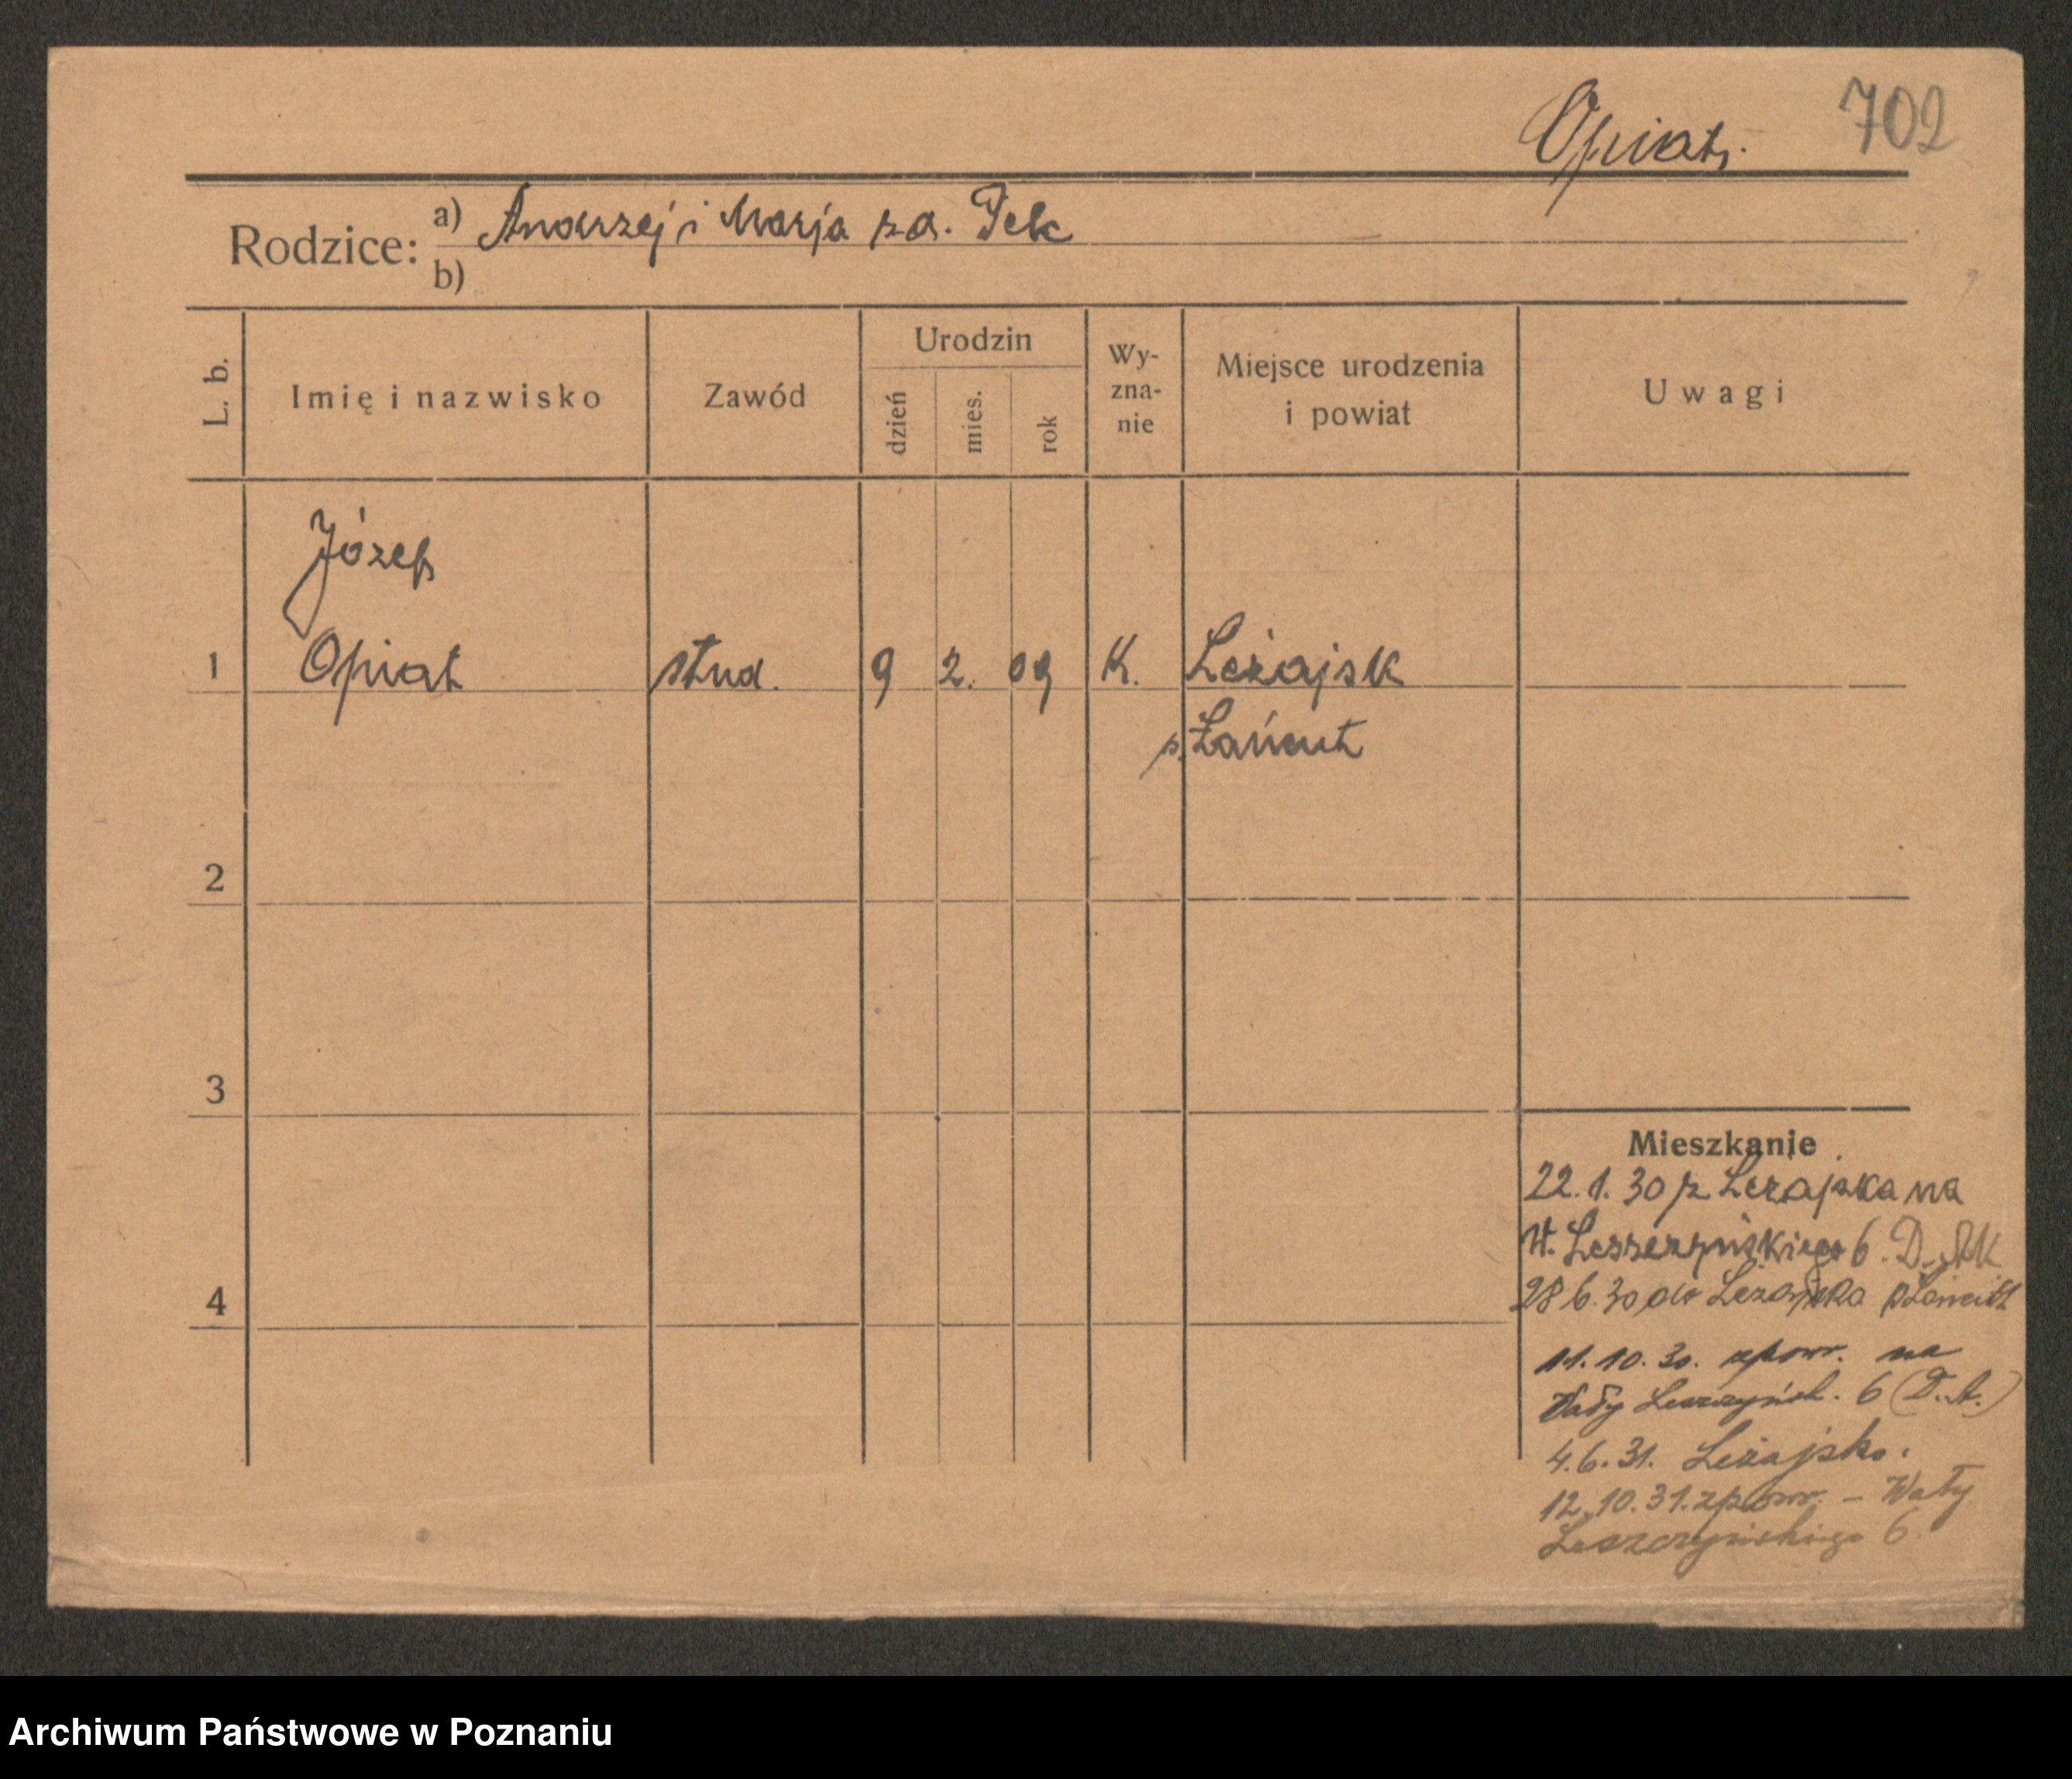 Opiat.
702
Rodzice: a) Andrzej i Marja za. Pelc
b)
L. b.
Imię i nazwisko
Zawód
Urodzin
dzień
mies.
rok
Wy-
zna-
nie
Miejsce urodzenia
i powiat
Uwagi
Józef
1 Opiat stud. 9 2. 09 K. Leżajsk
p. Łańcut
2
3
4
Mieszkanie
22.1.30 z Leżajska na
W. Leszczyńskiego 6. D. AK
28 6.30 do Leżajska p Łańcut
11.10.30. zpowr. na
Wały Leszczyńsk. 6 (D.A.)
4.6.31. Leżajska.
12.10.31. zpowr. – Wały
Leszczyńskiego 6.
Archiwum Państwowe w Poznaniu